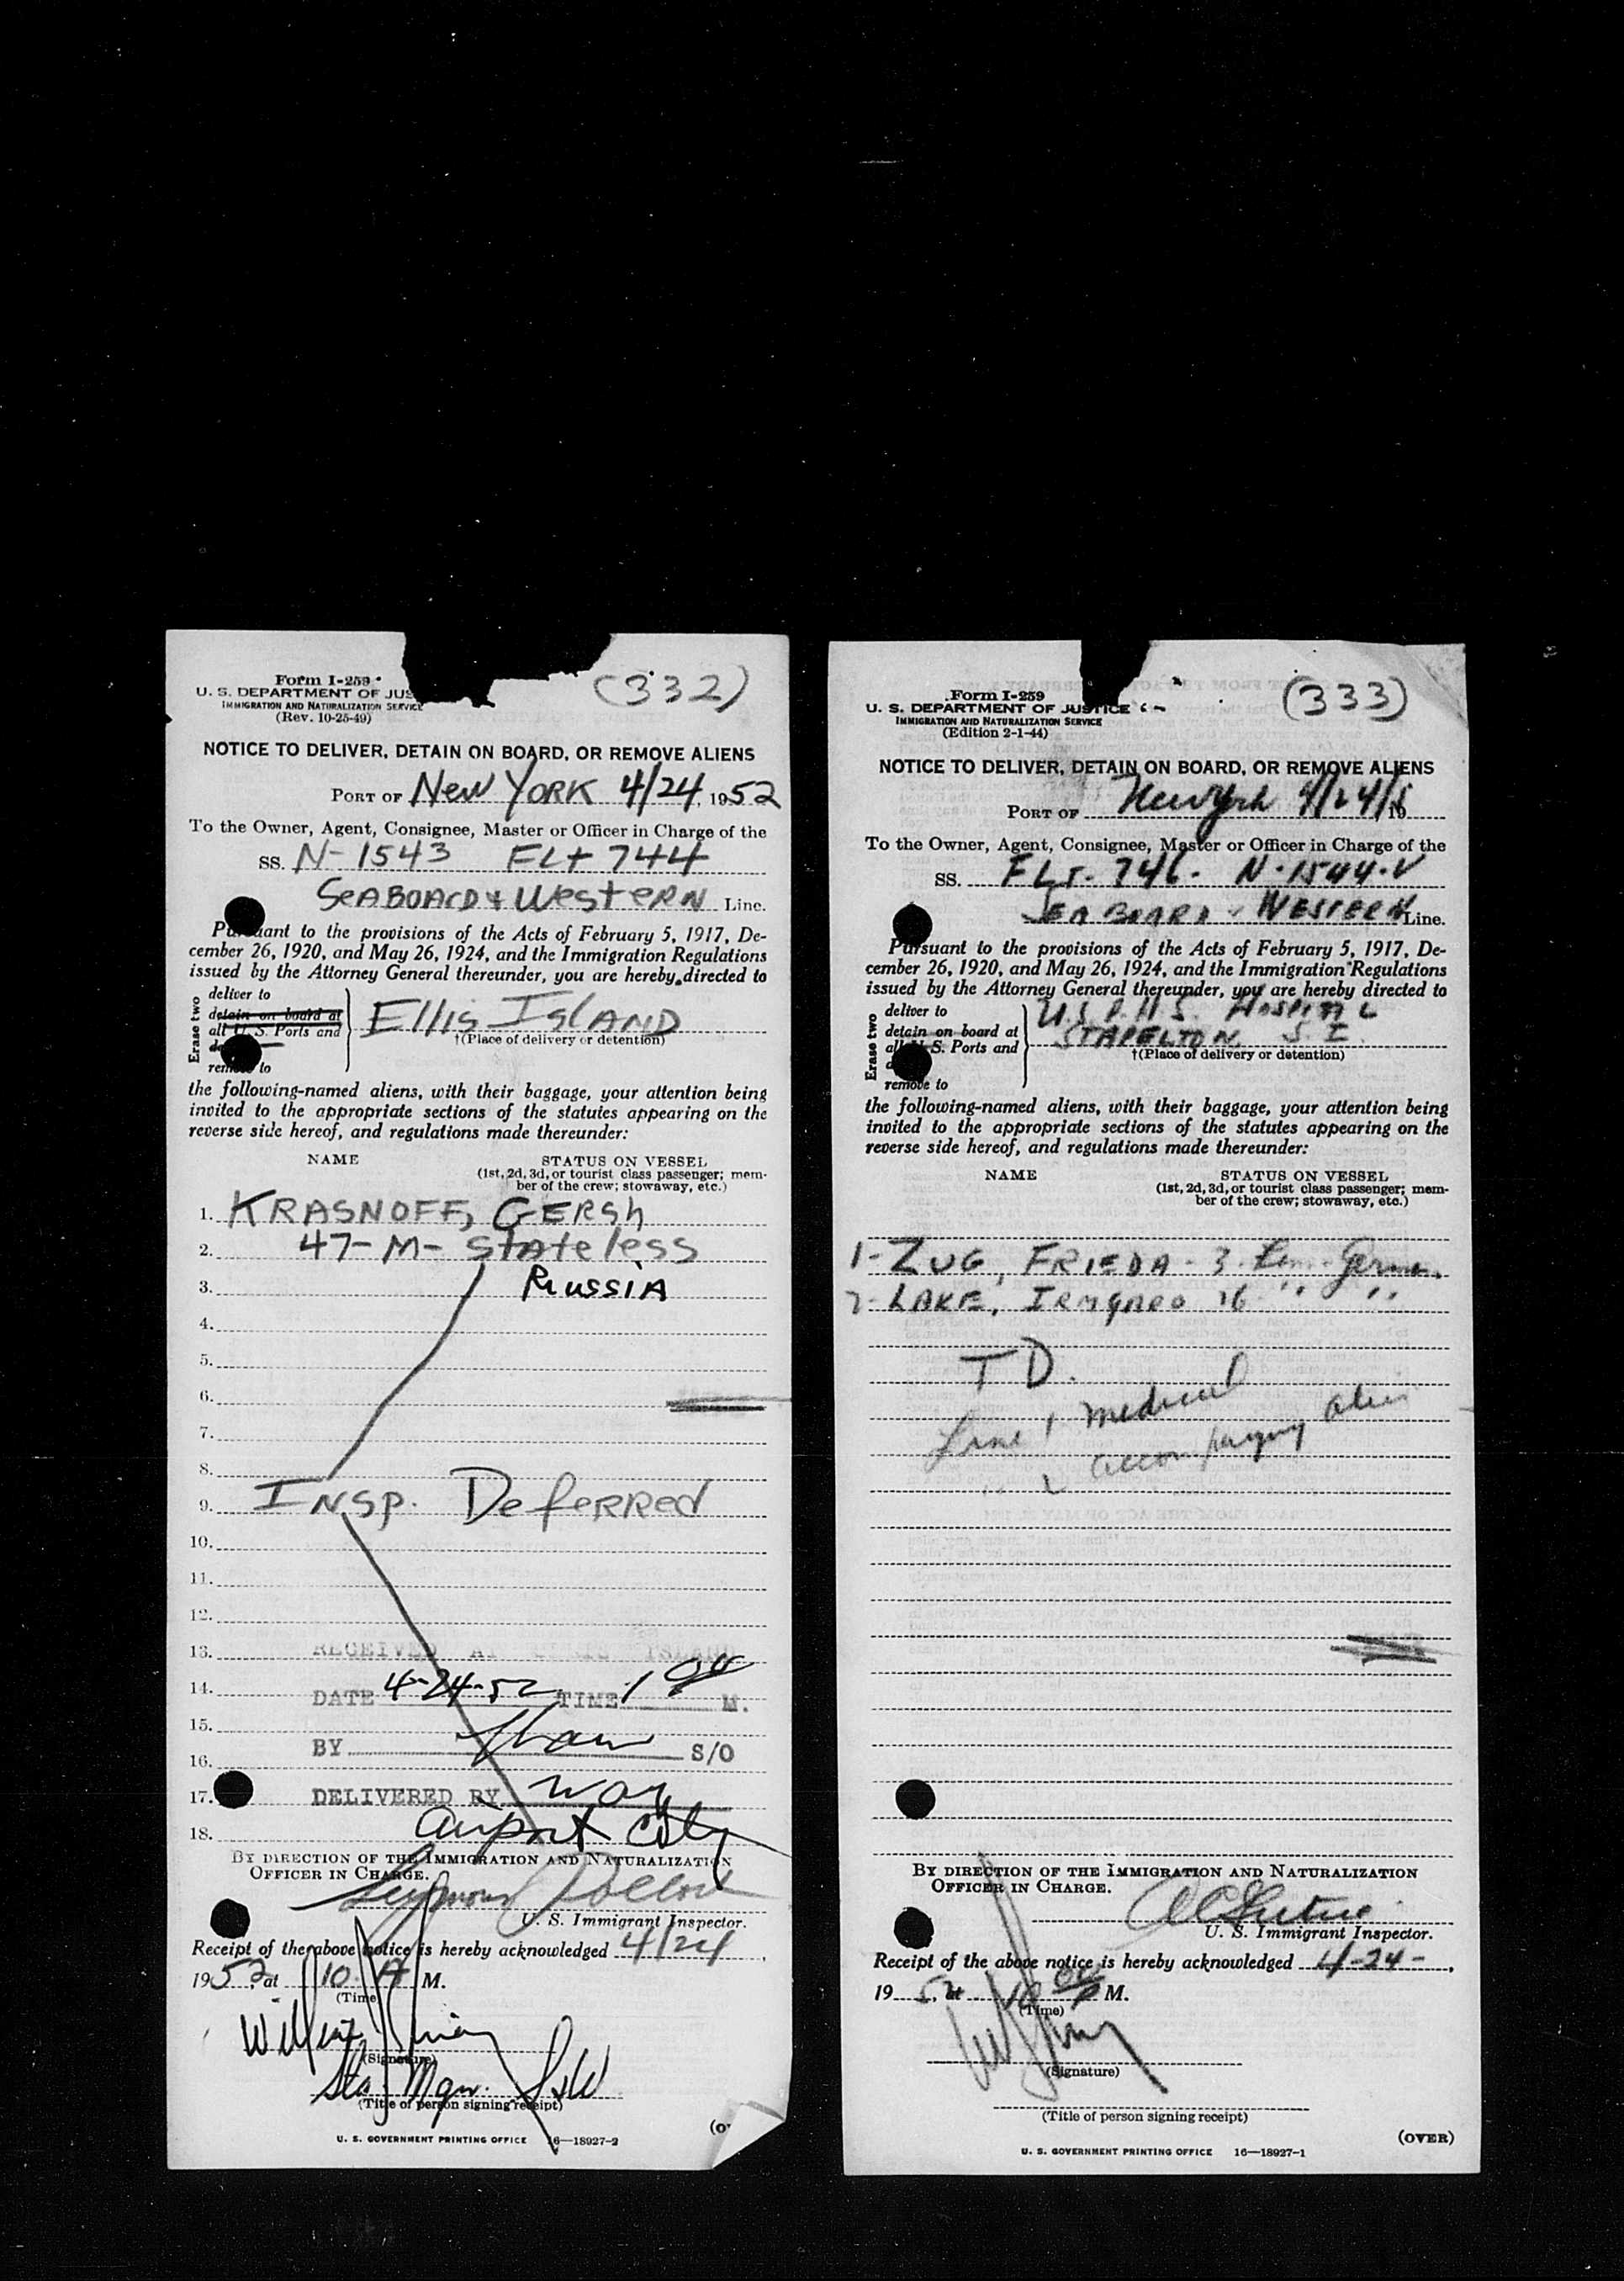 Form I-259
U. S. DEPARTMENT OF JUS
IMMIGRATION AND NATURALIZATION SERVICE
(Rev. 10-25-49)
(332)
NOTICE TO DELIVER, DETAIN ON BOARD, OR REMOVE ALIENS
PORT OF New YORK 4/24 1952
To the Owner, Agent, Consignee, Master or Officer in Charge of the
SS. N-1543 FLt 744
SEABOARD & WestERN Line.
Pursuant to the provisions of the Acts of February 5, 1917, De-
cember 26, 1920, and May 26, 1924, and the Immigration Regulations
issued by the Attorney General thereunder, you are hereby directed to
Erase two
deliver to
detain on board at
all U. S. Ports and
remove to
Ellis ISLAND
†(Place of delivery or detention)
the following-named aliens, with their baggage, your attention being
invited to the appropriate sections of the statutes appearing on the
reverse side hereof, and regulations made thereunder:
NAME STATUS ON VESSEL
(1st, 2d, 3d, or tourist class passenger; mem-
ber of the crew; stowaway, etc.)
1. KRASNOFF, GERSh
2. 47-M- Stateless
3. RussiA
4.
5.
6.
7.
8.
9. INSP. DefeRRed
10.
11.
12.
13. RECEIVED AT ELLIS ISLAND
14. DATE 4-24-52 TIME 1 M.
15.
BY S/O
16.
17. DELIVERED BY
18. Airport
BY DIRECTION OF THE IMMIGRATION AND NATURALIZATION
OFFICER IN CHARGE.
Seymour Pollock
U. S. Immigrant Inspector.
Receipt of the above notice is hereby acknowledged 4/24,
1952, at 10 A M.
(Time)
(Signature)
Sta Mgr. S&W
(Title of person signing receipt)
(O
U. S. GOVERNMENT PRINTING OFFICE 16—18927-2
Form I-259
U. S. DEPARTMENT OF JUSTICE
IMMIGRATION AND NATURALIZATION SERVICE
(Edition 2-1-44)
(333)
NOTICE TO DELIVER, DETAIN ON BOARD, OR REMOVE ALIENS
PORT OF New York 4/24/ 19
To the Owner, Agent, Consignee, Master or Officer in Charge of the
SS. FLT- 746- N-1544-V
SEABOARD & WESTERN Line.
Pursuant to the provisions of the Acts of February 5, 1917, De-
cember 26, 1920, and May 26, 1924, and the Immigration Regulations
issued by the Attorney General thereunder, you are hereby directed to
Erase two
deliver to
detain on board at
all U. S. Ports and
remove to
U.S.P.H.S. HOSPITAL
STAPELTON S. I.
†(Place of delivery or detention)
the following-named aliens, with their baggage, your attention being
invited to the appropriate sections of the statutes appearing on the
reverse side hereof, and regulations made thereunder:
NAME STATUS ON VESSEL
(1st, 2d, 3d, or tourist class passenger; mem-
ber of the crew; stowaway, etc.)
1- ZUG, FRIEDA - 3. Fem- German.
2- LAKE, IRMGARD 16 " "
T D.
Line 1 medical
" 2 accompanying alien
BY DIRECTION OF THE IMMIGRATION AND NATURALIZATION
OFFICER IN CHARGE.
U. S. Immigrant Inspector.
Receipt of the above notice is hereby acknowledged 4-24-,
19 52 at 10 00 M.
(Time)
(Signature)
(Title of person signing receipt)
(OVER)
U. S. GOVERNMENT PRINTING OFFICE 16—18927-1